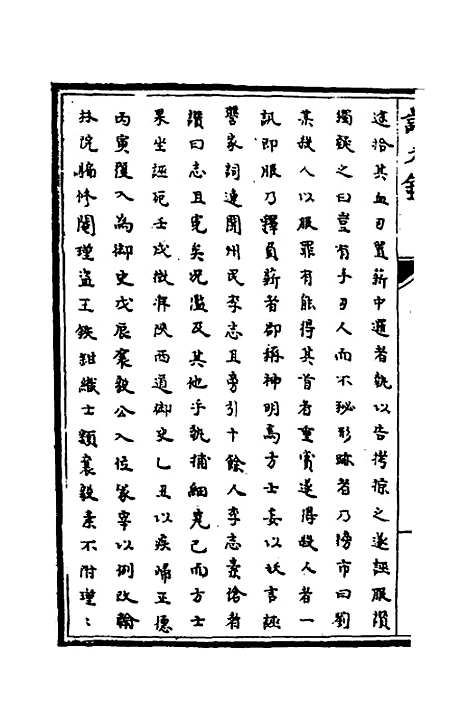 遠拾其血刃置薪中邏者執以告拷掠之遂誣服讚
獨疑之曰豈有手刃人而不秘形跡者乃榜市曰劉
某殺人以服罪有能得其首者重賞遂得殺人者一
訊即服乃釋負薪者郡稱神明焉方士妄以妖言誣
讐家詞連閬州民李志且旁引十餘人李志素愴者
讚曰志且寃矣况濫及其他乎執捕細完已而方士
果坐誣死壬戌徴拜陜西道御史乙丑以疾歸正德
丙寅復入為御史戊辰襄毅公入位冡宰以例改翰
林院編修閹瑾盜王鈇鉗織士類襄毅素不附瑾〻